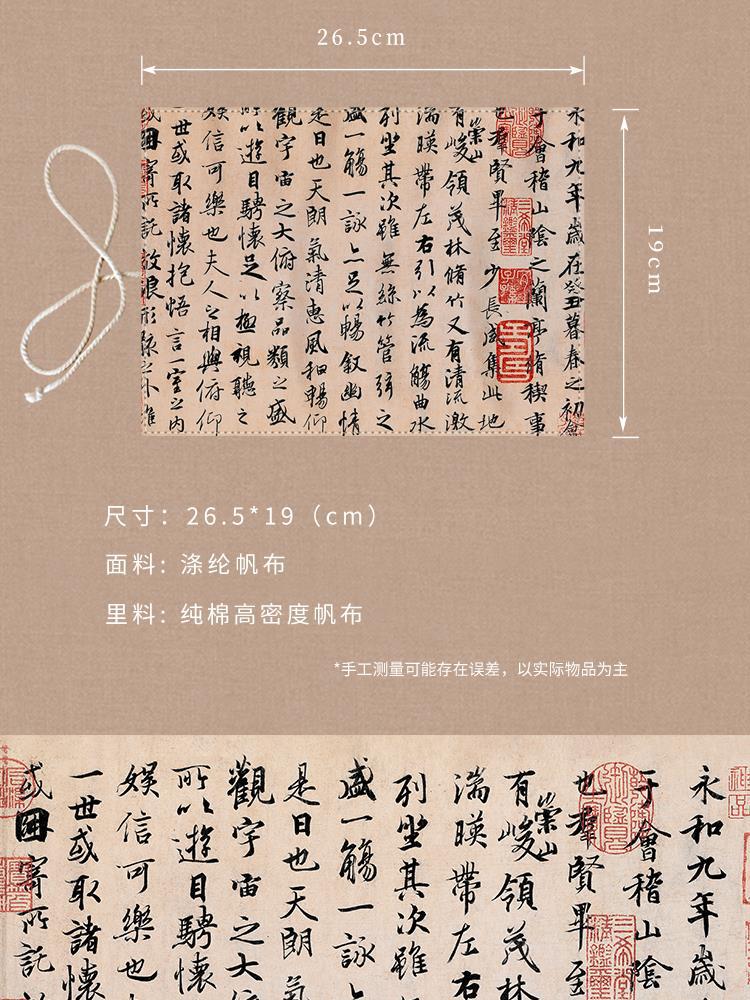 26.5cm
19cm
永和九年歲在癸丑暮春之初會
于會稽山陰之蘭亭脩稧事
也羣賢畢至少長咸集此地
有崇山峻領茂林脩竹又有清流激
湍暎帶左右引以為流觴曲水
列坐其次雖無絲竹管弦之
盛一觴一詠亦足以暢敘幽情
是日也天朗氣清惠風和暢仰
觀宇宙之大俯察品類之盛
所以遊目騁懷足以極視聽之
娛信可樂也夫人之相與俯仰
世或取諸懷抱悟言一室之內
或因寄所託放浪形骸之外雖
尺寸：26.5*19（cm）
面料：涤纶帆布
里料：纯棉高密度帆布
*手工测量可能存在误差，以实际物品为主
永和九年歲
于會稽山陰
也羣賢畢至
有崇山峻領茂林
湍暎帶左右
列坐其次雖
盛一觴一詠
是日也天朗氣
觀宇宙之大
所以遊目騁懷
娛信可樂也
一世或取諸懷
或因寄所託